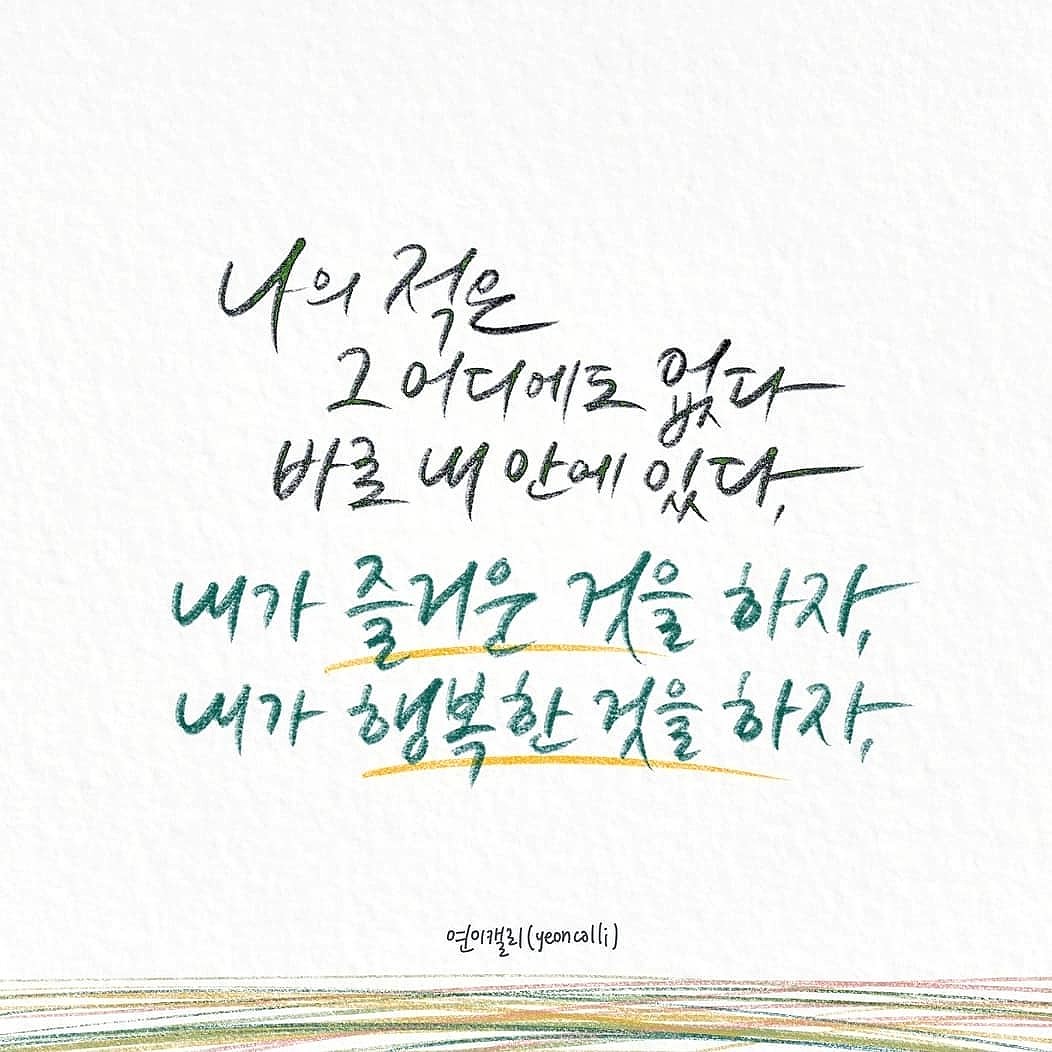 나의 적은
그 어디에도 없다
바로 내 안에 있다,
내가 즐거운 것을 하자,
내가 행복한 것을 하자,
연이캘리(yeoncalli)